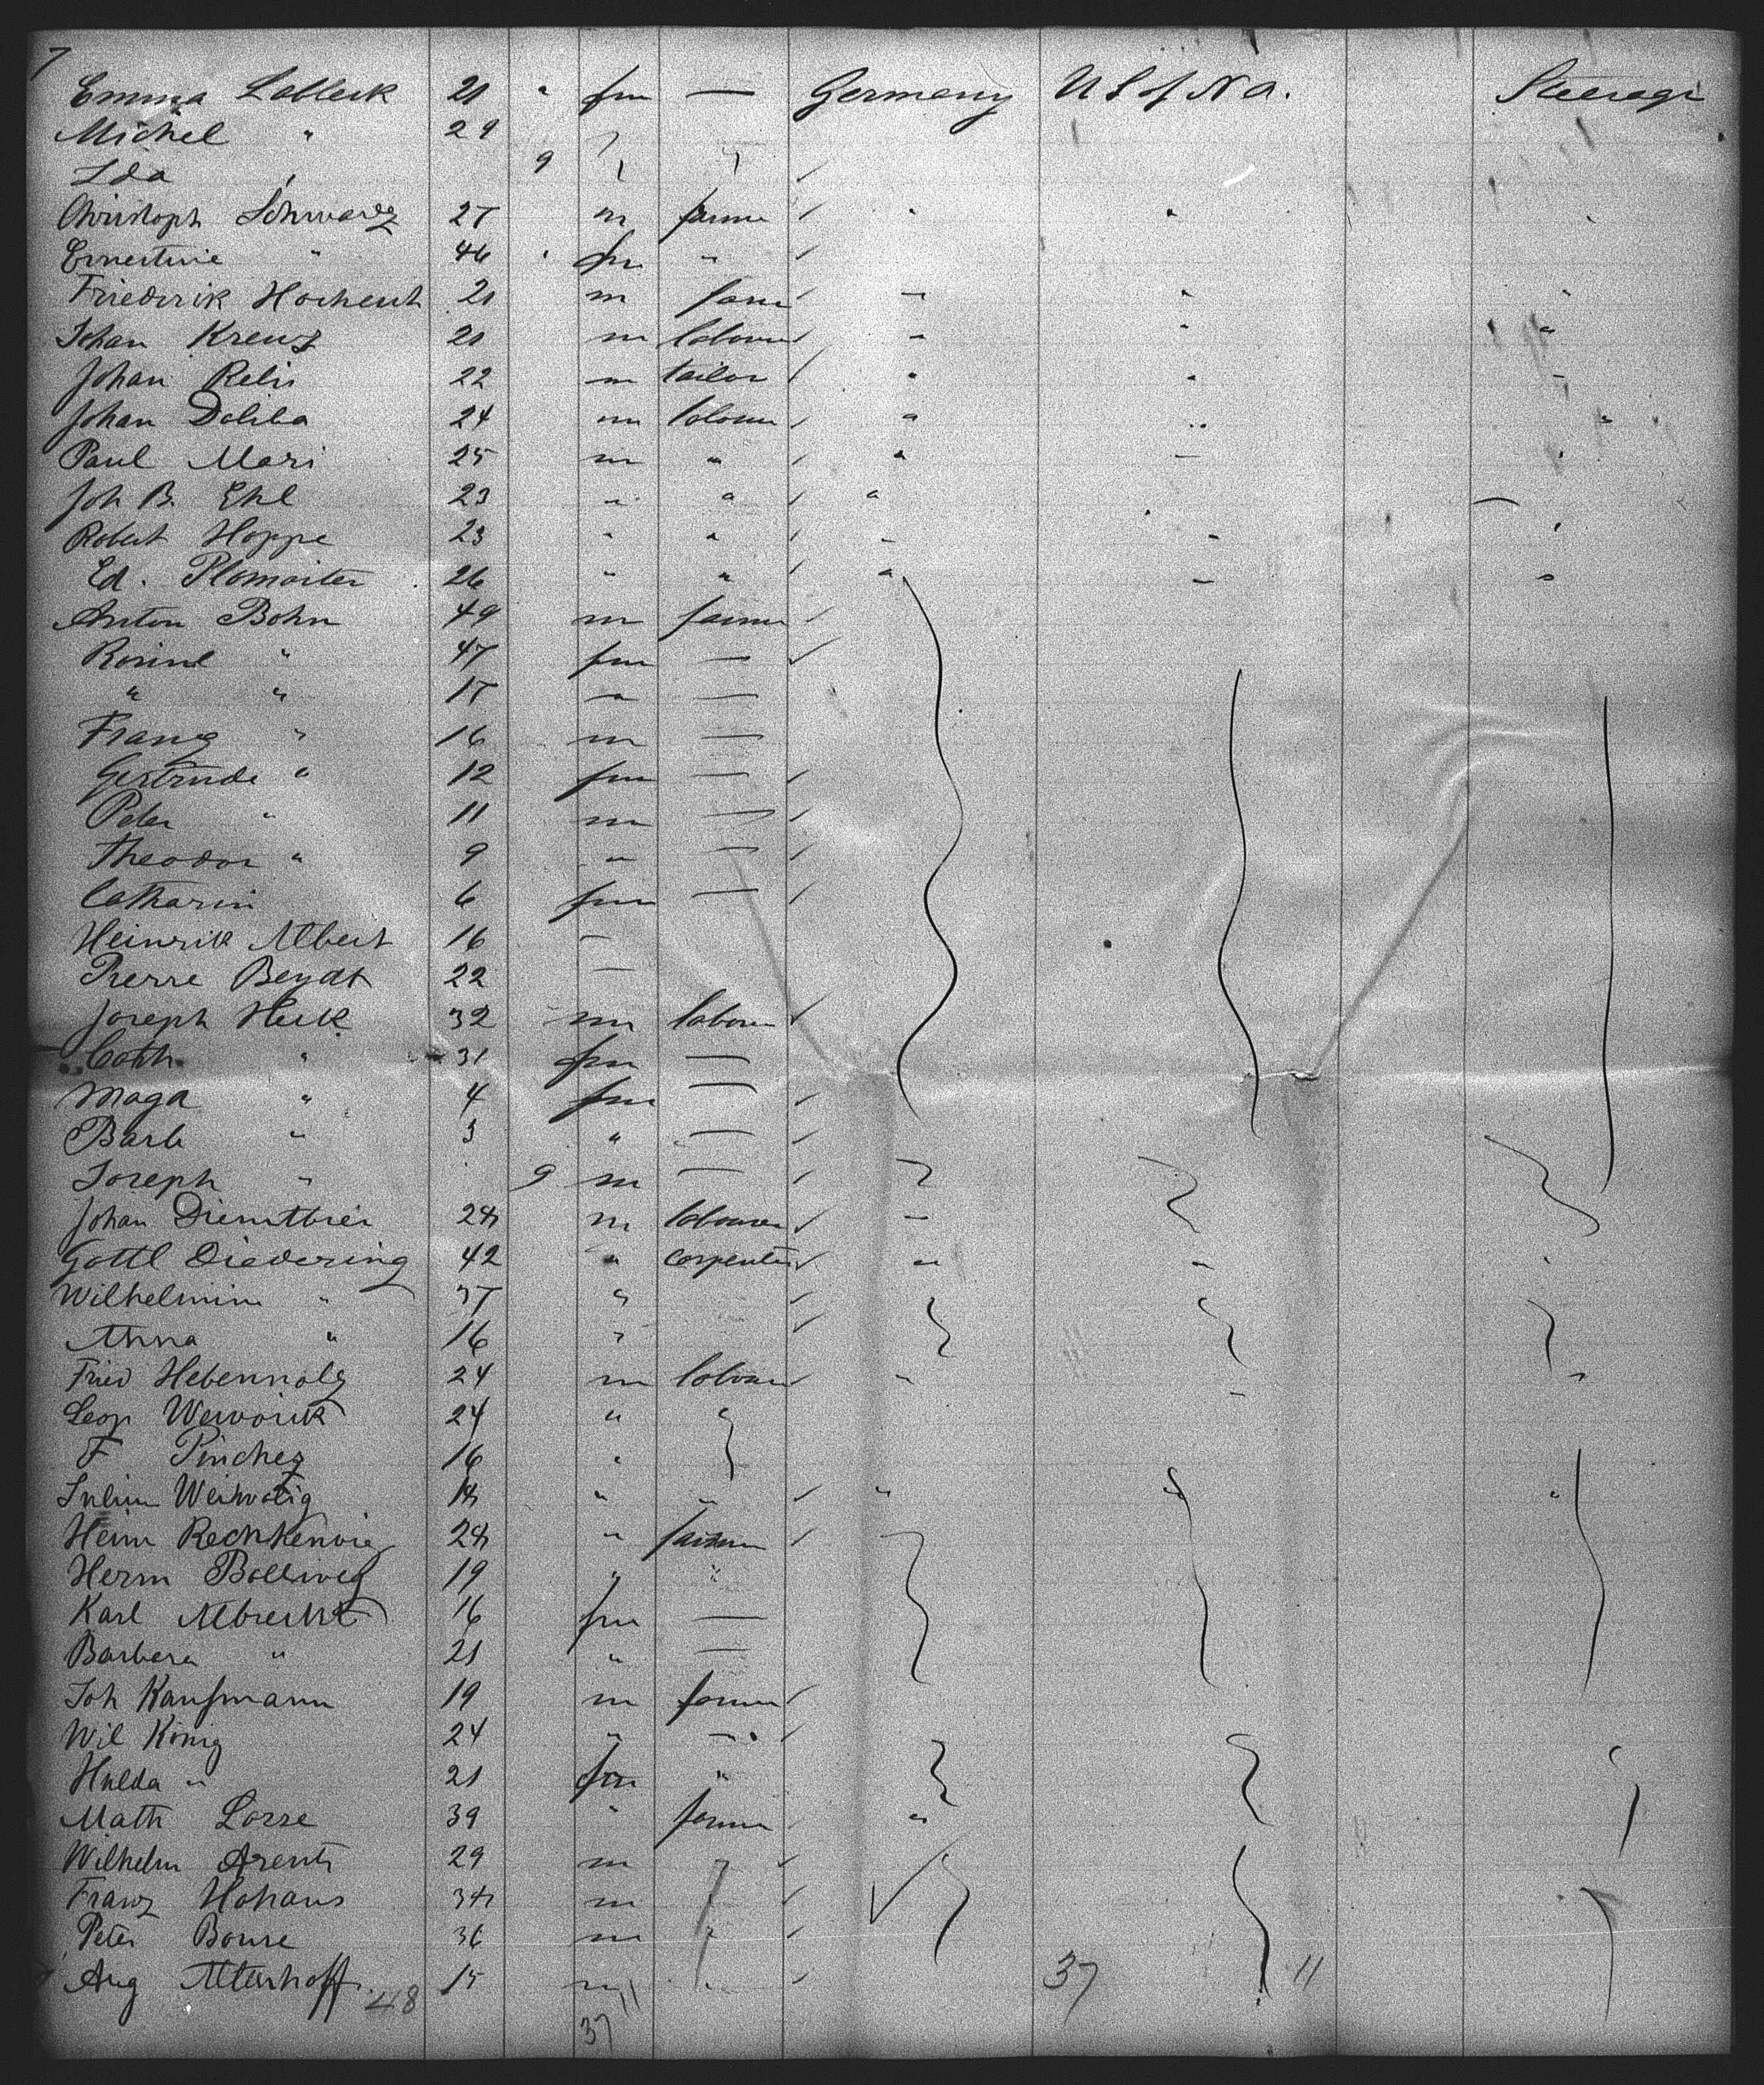 7
Emma Lableck 21 " fm — Germany U S of N a. Steerage
Michel " 29
Ida " 9
Christoph Schwarz 27 m farmer
Ernestine " 46 fm "
Friedrik 21 m farm
Johan Kreuz 21 m labourer
Johan Relis 22 m tailor
Johan Doliba 24 m labourer
Paul Mari 25 m "
Joh B. Ehl 23 " "
Robert Hoppe 23 " "
Ed. Plomaiter 26 " "
Anton Bohn 49 m farmer
Rosine " 47 fm —
" " 17 " —
Franz " 16 m —
Gertrude " 12 fm —
Peter " 11 m —
Theodor " 9 " —
Catharin 6 fm —
Heinrik Albert 16 —
Pierre Beydt 22 —
Joseph Heck 32 m labourer
Cath. " 31 fm —
Maga " 4 fm —
Barb " 3 " —
Joseph " 9 m —
Johan 24 m labourer
Gottl Diedering 42 " carpenter
Wilhelmine " 37 "
Anna " 16 "
Fried Hebennolz 24 m labourer
Leop 24 "
F Pinchez 16 "
18 " "
Heinr 24 " farmer
Herm Bollweg 19 " "
Karl Albrecht 16 fm —
Barbera " 21 " —
Joh Kaufmann 19 m farmer
Wil König 24 " —
Hulda " 21 fm "
Math Lorse 39 " farmer
Wilhelm Arents 29 m
Franz Hohaus 34 m
Peter Bourse 36 m "
Aug Alterhoff. 15 m " 37 11
48 37 11